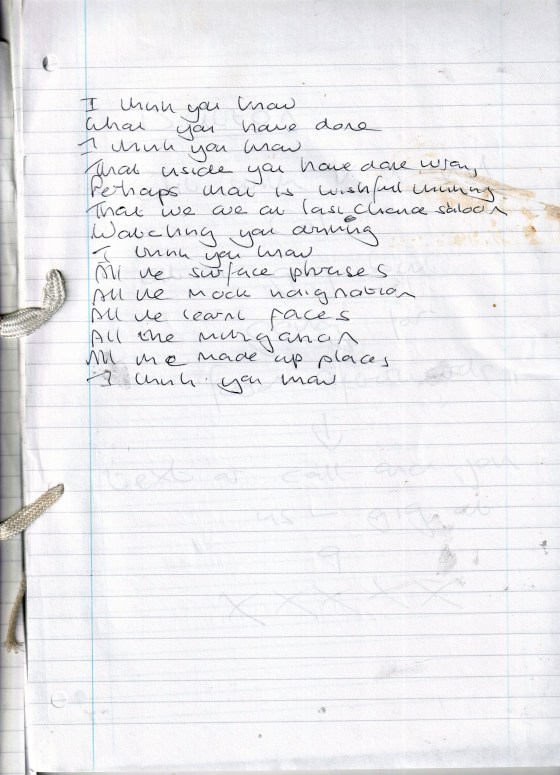 I think you know
What you have done
I think you know
That inside you have done wrong
Perhaps that is wishful thinking
That we are at last chance saloon
Watching you drinking
I think you know
All the surface phrases
All the mock indignation
All the learnt faces
All the mitigation
All the made up places
I think you know
text or call and you
XXXXX